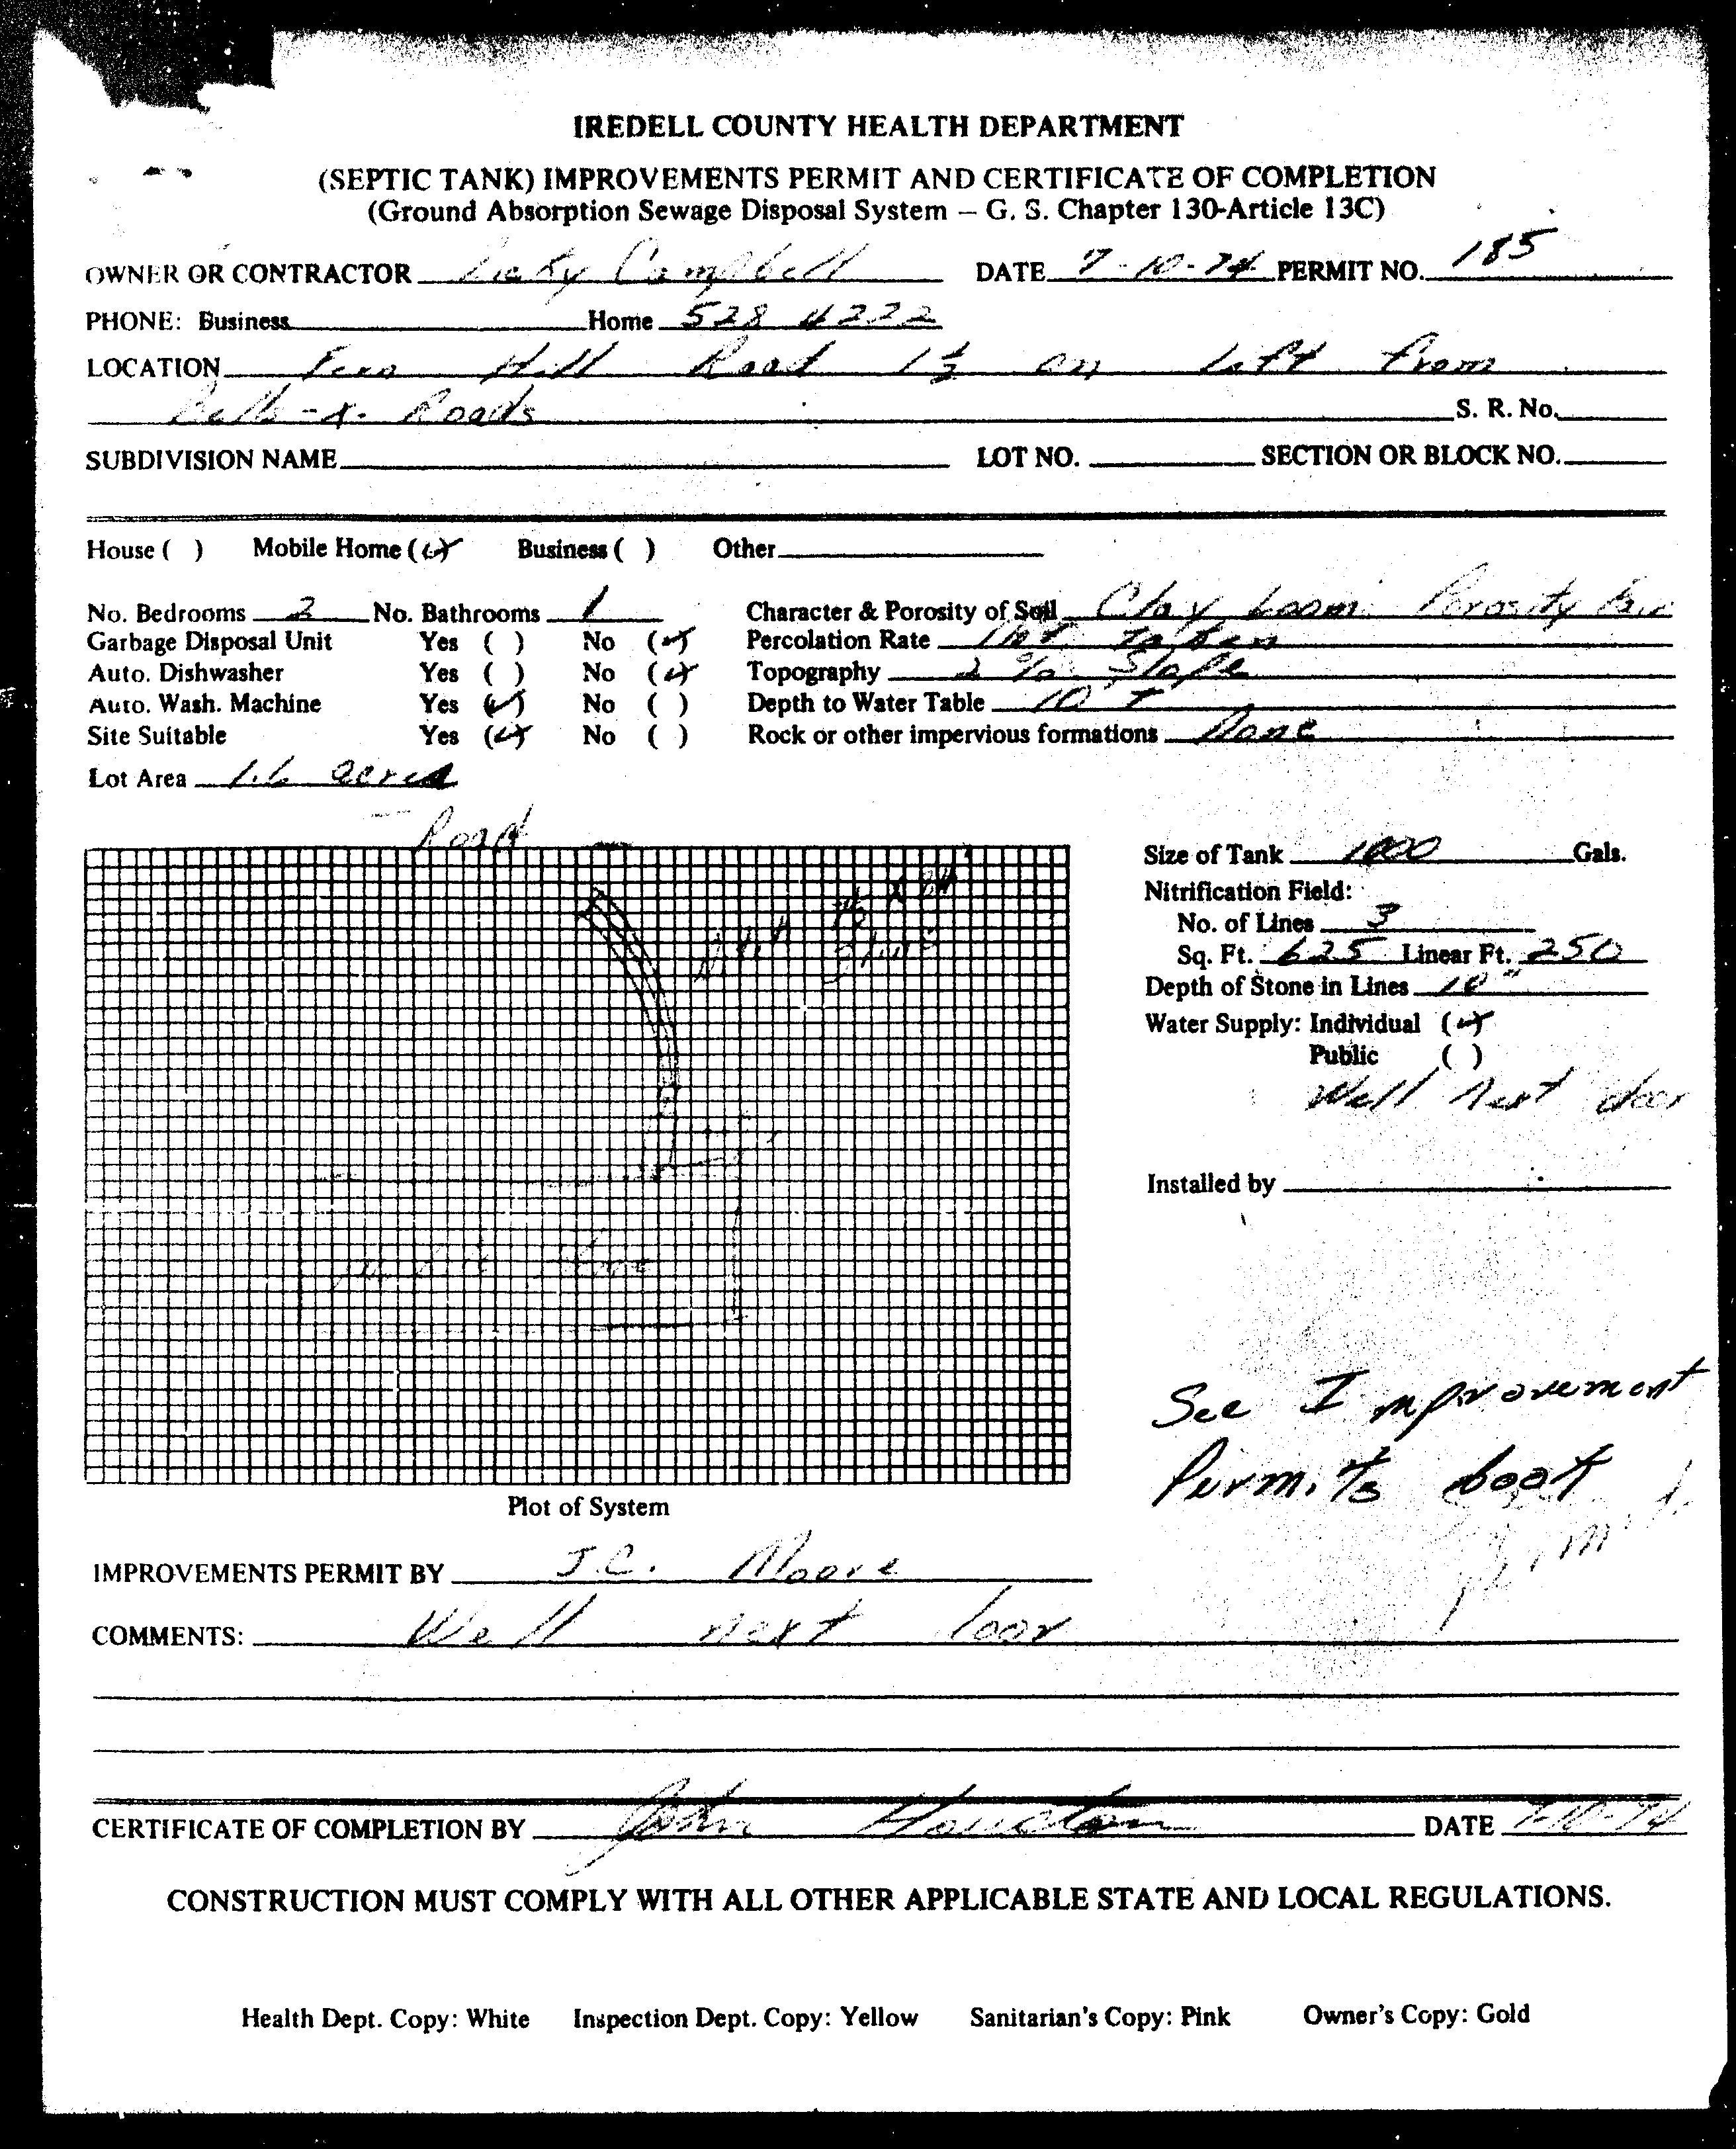 IREDELL COUNTY HEALTH DEPARTMENT
(SEPTIC TANK) IMPROVEMENTS PERMIT AND CERTIFICATE OF COMPLETION
(Ground Absorption Sewage Disposal System – G. S. Chapter 130-Article 13C)
OWNER OR CONTRACTOR Campbell DATE 7-10-74 PERMIT NO. 185
PHONE: Business Home 528 4222
LOCATION Fern Hill Road 1½ on left from
Bells-X-Roads S. R. No.
SUBDIVISION NAME LOT NO. SECTION OR BLOCK NO.
House ( ) Mobile Home (✓) Business ( ) Other
No. Bedrooms 2 No. Bathrooms 1 Character & Porosity of Soil Clay Loam Porosity
Garbage Disposal Unit Yes ( ) No (✓) Percolation Rate Not taken
Auto. Dishwasher Yes ( ) No (✓) Topography 2 % Slope
Auto. Wash. Machine Yes (✓) No ( ) Depth to Water Table 10 +
Site Suitable Yes (✓) No ( ) Rock or other impervious formations None
Lot Area 1.6 acres
Road
Size of Tank 1000 Gals.
Nitrification Field:
No. of Lines 3
3 lines
Sq. Ft. 625 Linear Ft. 250
Depth of Stone in Lines 10"
Water Supply: Individual (✓)
Public ( )
Well next door
Installed by
mobile home
See Improvement
Permits book
Plot of System
IMPROVEMENTS PERMIT BY J.C. Moore
COMMENTS: Well next door
CERTIFICATE OF COMPLETION BY John Houston DATE 7-10-74
CONSTRUCTION MUST COMPLY WITH ALL OTHER APPLICABLE STATE AND LOCAL REGULATIONS.
Health Dept. Copy: White Inspection Dept. Copy: Yellow Sanitarian's Copy: Pink Owner's Copy: Gold